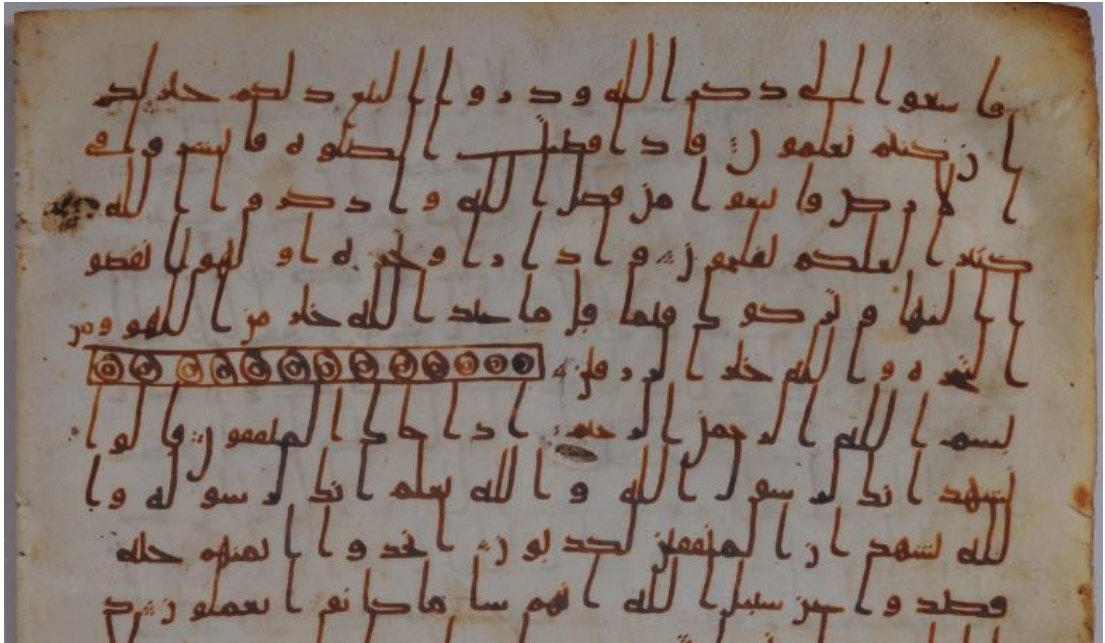 فاسعوا الى ذكر الله وذروا البيع ذلكم خير لكم
ان كنتم تعلمون فاذا قضيت الصلوة فانتشروا في
الارض وابتغوا من فضل الله واذكروا الله
كثيرا لعلكم تفلحون واذا راوا تجرة او لهوا انفضو
ا اليها وتركوك قيما قل ما عند الله خير من اللهو ومن
التجرة والله خير الرزقين
بسم الله الرحمن الرحيم اذا جاك المنفقون قالوا
نشهد انك لرسول الله والله يعلم انك لرسوله وا
لله يشهد ان المنفقين لكذبون اتخذوا ايمنهم جنة
فصدوا عن سبيل الله انهم سا ما كانوا يعملون ذ